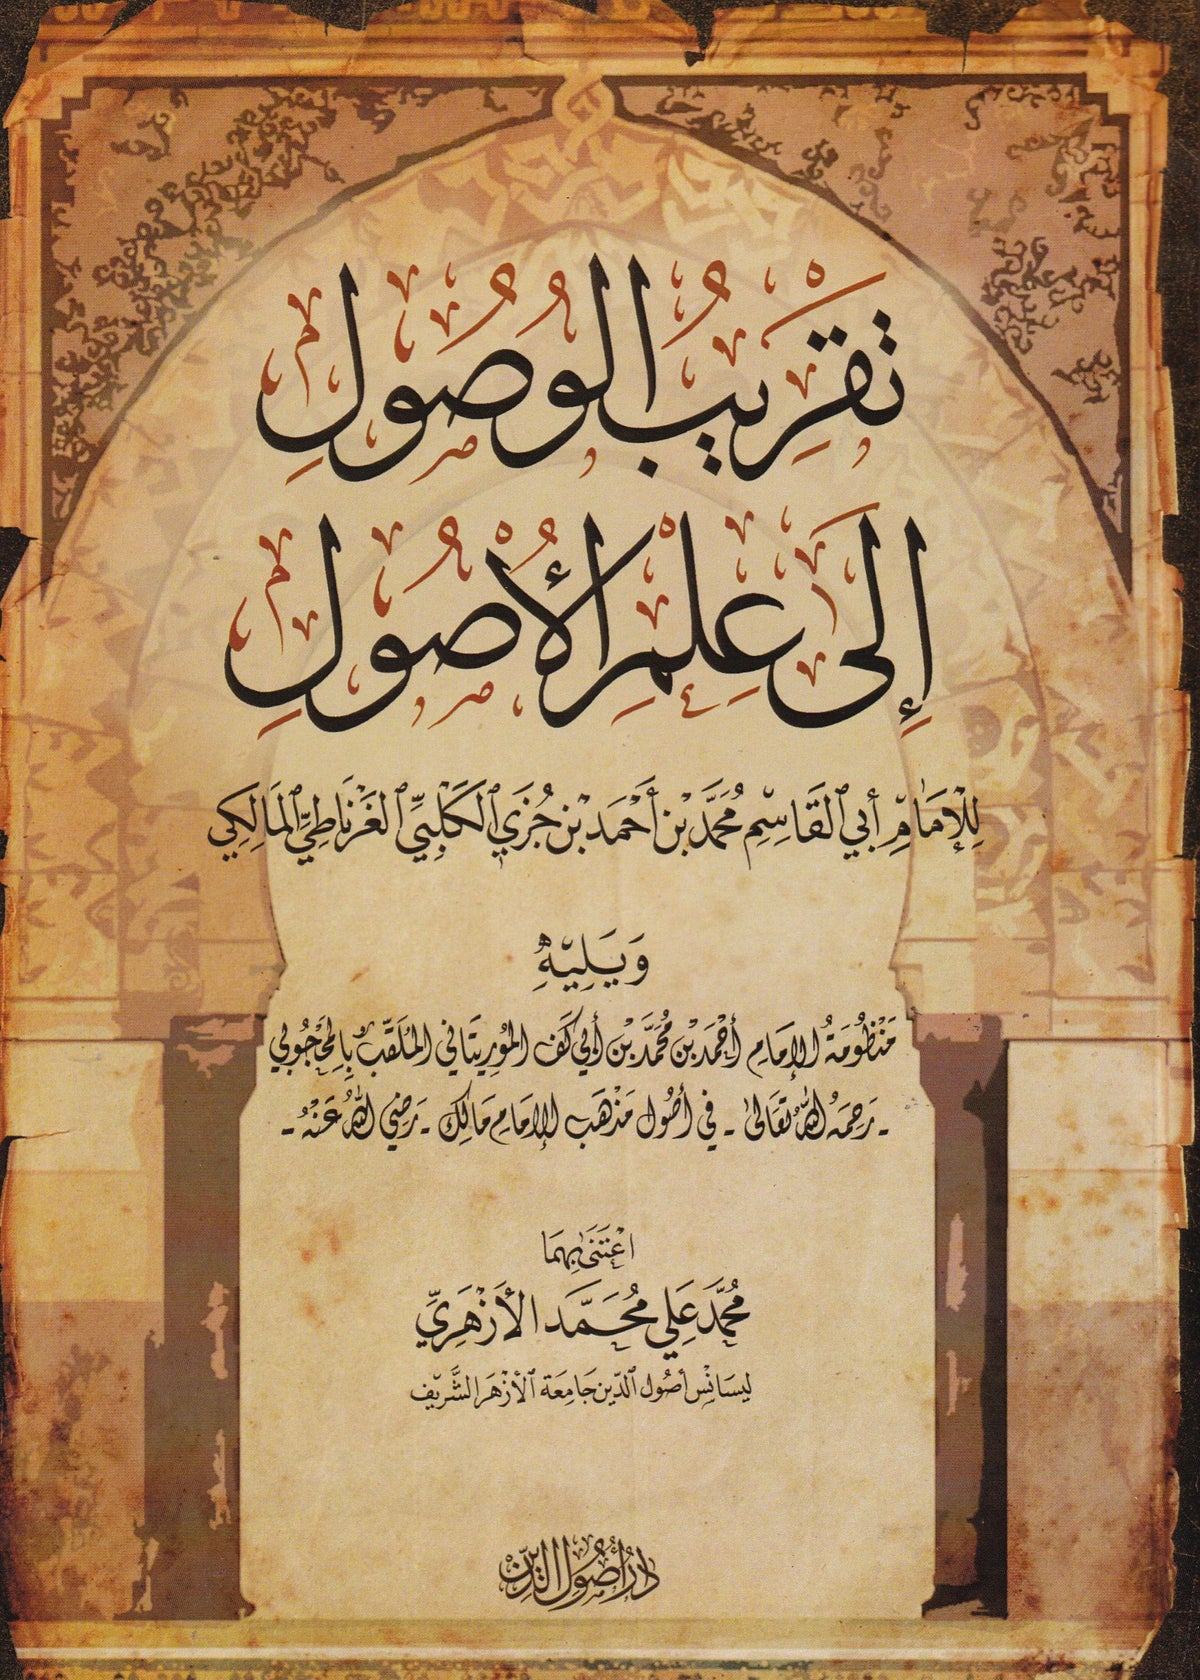 تَقْرِيبُ الوُصُولِ
إِلَى عِلْمِ الأُصُولِ
لِلْإِمَامِ أَبِي ٱلقَاسِمِ مُحَمَّد بْن أَحْمَد بْن جُزَي ٱلكَلْبِيِّ ٱلغَرْنَاطِيِّ ٱلمَالِكِي
وَيَلِيهِ
مَنْظُومَةُ الإِمَامِ أَحْمَد بْن مُحَمَّد بْن أَبِي كَف المُورِيتَانِي المُلَقَّبُ بِالمَحْجُوبِي
- رَحِمَهُ اللهُ تَعَالَى - فِي أُصُول مَذْهَب الإِمَامِ مَالِك - رَضِيَ اللهُ عَنْهُ -
اعْتَنَى بِهِمَا
مُحَمَّد عَلِي مُحَمَّد الأَزْهَرِيّ
لِيسَانْس أُصُول ٱلدِّين جَامِعَة ٱلأَزْهَر الشَّرِيف
دَارُ أُصُولِ الدِّين